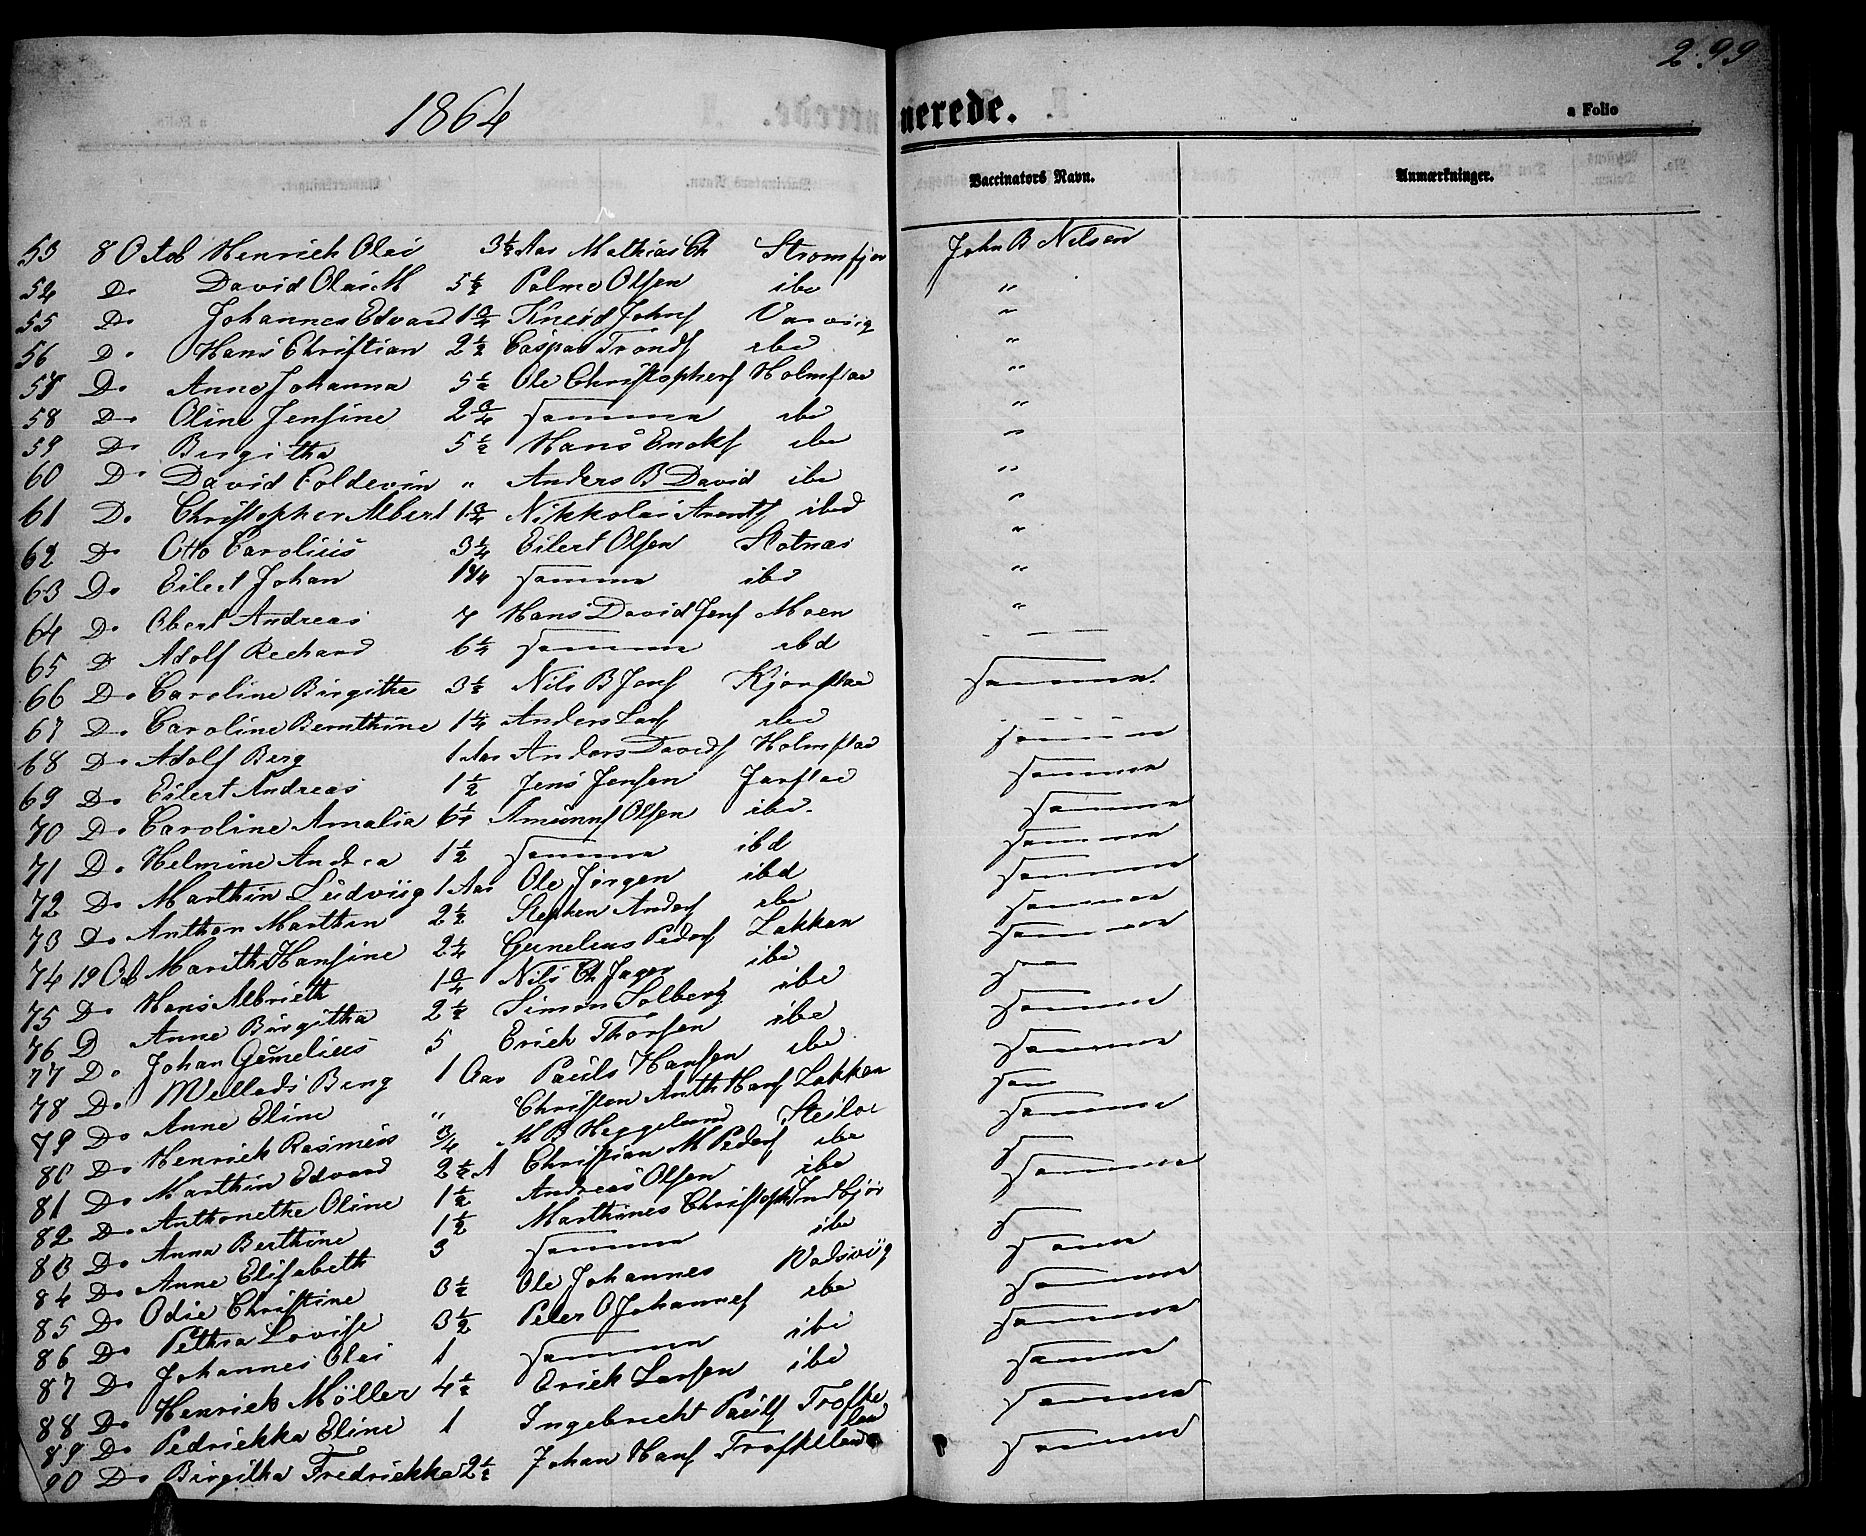 299
1864
nerede.
a Folio
Vaccinators Navn.
Anmærkninger.
53 8 Octob Henrich Olai 3½ Aar Mathias Ch Stromfjor John B Nilsen
54 Do David Olai M 5½ Palme Olsen ibd "
55 Do Johannes Edvard 1¾ Johnsf "
56 Do Hans Christian 2½ Caspar Trondsf ibd "
58 Do Anne Johanna 5½ Ole Christophersf Holmstad "
58 Do Oline Jensine 2¾ samme ibd "
59 Do Birgitha 5½ Hans Enoksf ibd "
60 Do David Coldevin " Anders B David ibd "
61 Do Christopher Albert 1¾ Nikkolai Arentsf ibd "
62 Do Otto Carolius 3¼ Eilert Olsen Slotnæs "
63 Do Eilert Johan 1¼ samme ibd "
64 Do Obert Andreas 7 Hans David Jensf Moen "
65 D Adolf Rechard 6½ samme ibd
66 Do Caroline Birgitha 3½ Nils B Jensf Kjørstad samme
67 Do Caroline Bernthine 1¼ Anders Larsf ibd samme
68 Do Adolf Berg 1 Aar Anders Davidsf Holmstad samme
69 Do Eilert Andreas 1½ Jens Jensen Jarstad samme
70 Do Caroline Amalia 6½ Amunnsf Olsen ibd samme
71 Do Helmine Andrea 1½ samme ibd samme
72 Do Marthin Ludviig 1 Aar Ole Jørgen ibd samme
73 Do Anthon Marthin 2½ Stephen Andersf ibd samme
74 19 Oct Marith Hansine 2¼ Gunelius Pedersf Løkken
75 Do Hans Albrieth 1¾ Nils Ch Jager ibd samme
76 D Anne Birgitha 2½ Simon Solberg ibd samme
77 Do Johan Gunelius 5 Erich Thorsen ibd
78 Do Mellads Berg 1 Aar Pauls Hansen ibd samme
79 Do Anne Eline " Christen Anth Hansf Løkken
80 Do Henrich Rasmus ¾ M B Heggelund Steiloe samme
81 Do Marthin Edvard 2½ A Christian M Pedersf ibd
82 Do Anthonethe Oline 1½ Andreas Olsen ibd samme
83 Do Anna Berthine 1½ Marthines Christoph Indbjør samme
84 Do Anne Elisabeth 3 samme ibd samme
85 Do Odie Christine 3½ Ole Johannes Vadsviig samme
86 Do Pethra Lovise 3½ Peter O Johannesf ibd samme
87 Do Johannes Olai 1 samme ibd
88 Do Henrich Møller 4½ Erich Larsen ibd samme
89 Do Pedriekka Eline 1 Ingebrecht Paulsf Trofkeland
90 Do Birgitha Fredriekke 2½ Johan Hansf Trofkeland